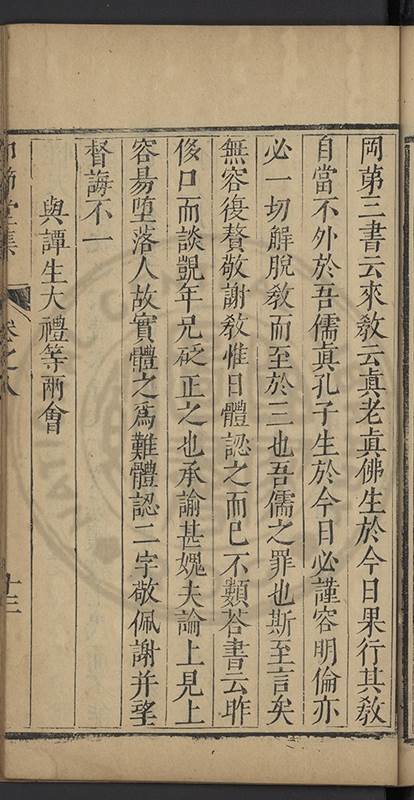 岡第三書云來敎云眞老眞佛生於今日果行其敎
自當不外於吾儒眞孔子生於今日必謹容明倫亦
必一切解脫敎而至於三也吾儒之罪也斯至言矣
無容復贅敬謝敎惟日體認之而已不纇荅書云昨
俟口而談覬年兄砭正之也承諭甚媿夫論上見上
容昜墮落人故實體之爲難體認二字敬佩謝并望
督誨不一
與譚生大禮等兩會
堂集
卷之八
十三